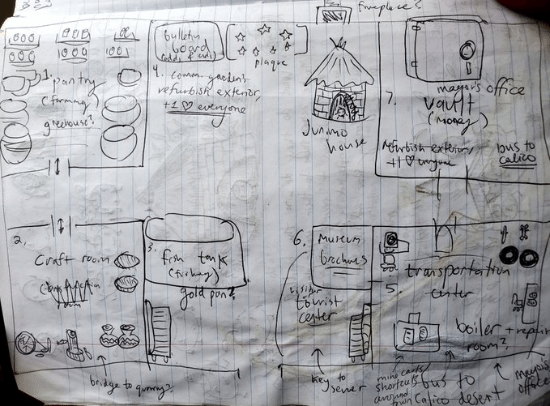 fireplace?
bulletin
board
(odds & ends)
plaque
1. pantry
(farming)
greenhouse?
4. community garden
refurbish exterior,
+1 ♡ everyone
Junimo
house
mayor's office
7. vault
(money)
refurbish exterior
+1 ♡ everyone
bus to
calico
2.
Craft room
3. fish tank
(fishing)
gold pan?
6. Museum
brochures
visitor
tourist
center
5.
transportation
center
boiler + repair
room?
bridge to quarry?
key to
sewer
mine carts
shortcuts
around
town
bus to
Calico desert
mayor's
office